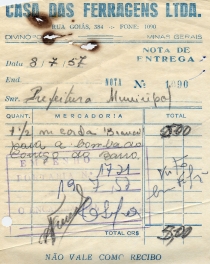 CASA DAS FERRAGENS LTDA.
RUA GOIÁS, 584 - FONE, 1090
DIVINÓPOLIS MINAS GERAIS
NOTA DE ENTREGA
Data 8/7/57
End. NOTA Nº 090
Snr. Prefeitura Municipal
QUANT. MERCADORIA TOTAL
1 1/2 m corda 5,00
para a bomba do
1721
19 7 57
TOTAL CR$ 5,00
NÃO VALE COMO RECIBO